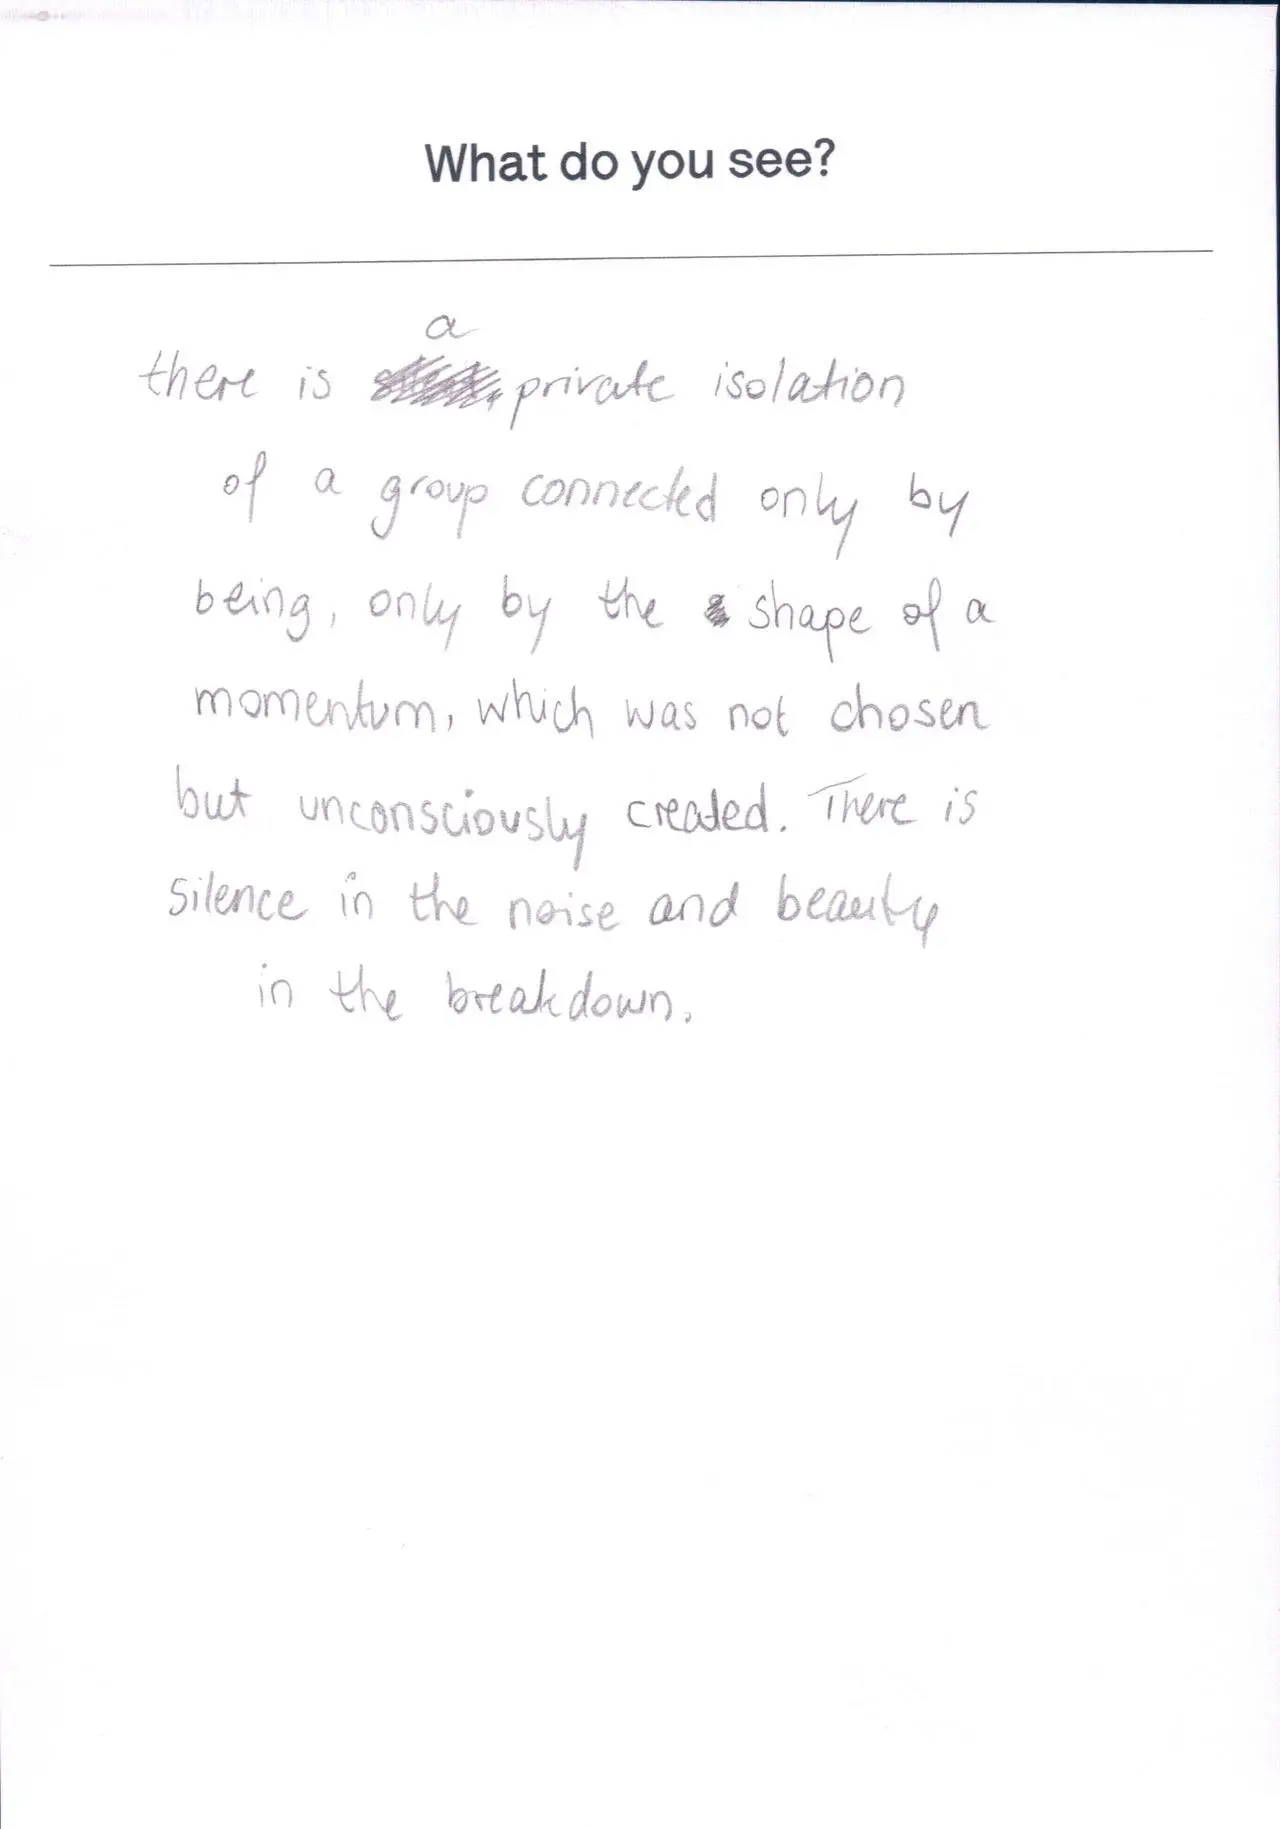 What do you see?
a
there is private isolation
of a group connected only by
being, only by the shape of a
momentum, which was not chosen
but unconsciously created. There is
silence in the noise and beauty
in the breakdown.